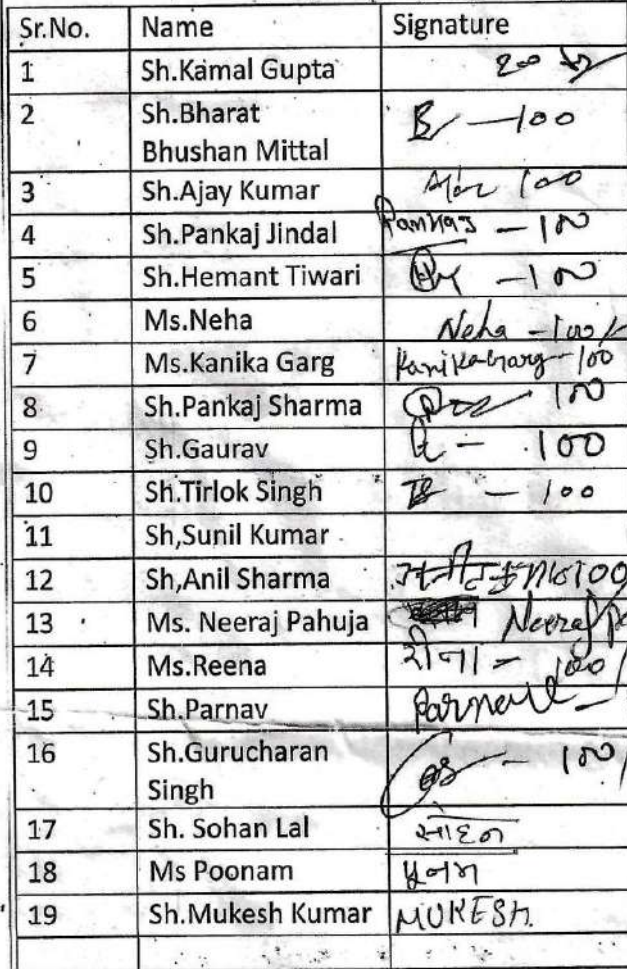 Sr.No. Name Signature
1 Sh.Kamal Gupta
2 Sh.Bharat B —100
Bhushan Mittal
3 Sh.Ajay Kumar 100
4 Sh.Pankaj Jindal Pankaj — 100
5 Sh.Hemant Tiwari — 100
6 Ms.Neha Neha — 100/-
7 Ms.Kanika Garg Kanika Garg — 100
8 Sh.Pankaj Sharma 100
9 Sh.Gaurav — 100
10 Sh.Tirlok Singh — 100
11 Sh,Sunil Kumar
12 Sh,Anil Sharma 100
13 Ms. Neeraj Pahuja Neeraj
14 Ms.Reena रीना — 100/
15 Sh.Parnav Parnav —
16 Sh.Gurucharan — 100/
Singh
17 Sh. Sohan Lal
18 Ms Poonam पुनम
19 Sh.Mukesh Kumar MUKESH.